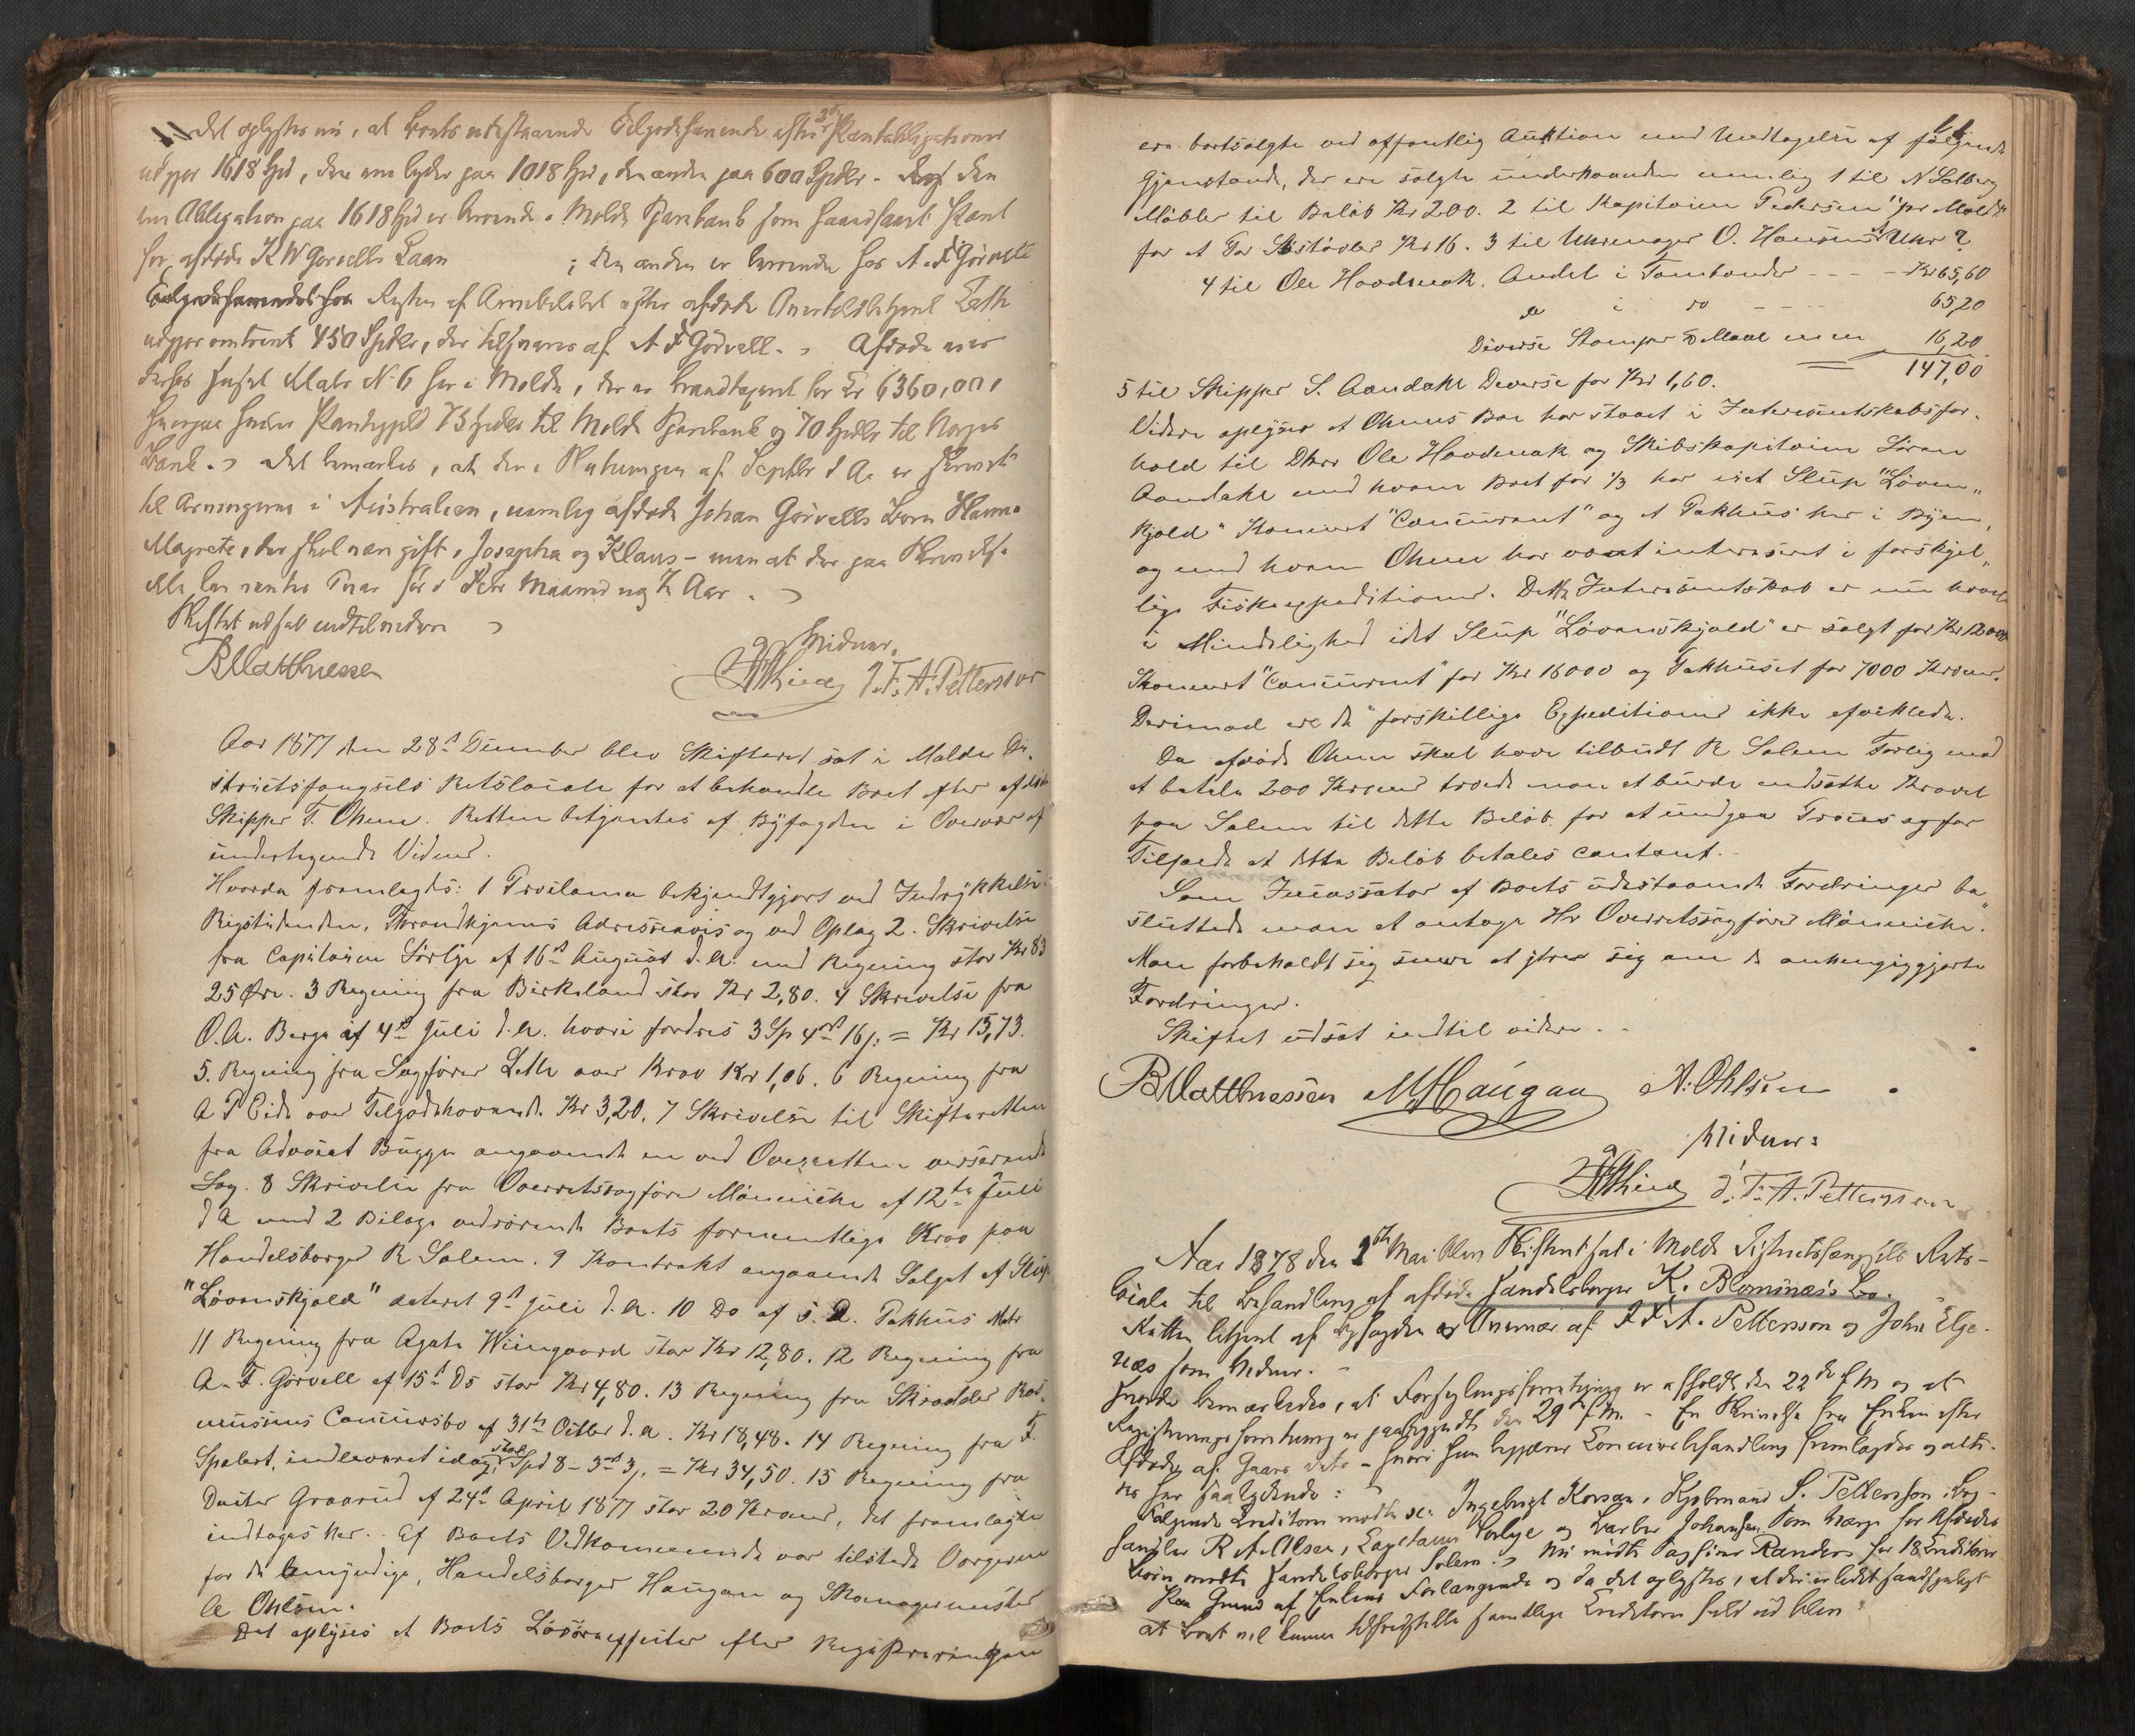 det oplystes nu, at Boets udestaaende Tilgodehavende efter 2de Pantobligationer
udgjør 1618 Spd, den ene lyder paa 1018 Spd, den anden paa 600 Spdlr.
Obligation paa 1618 Spd er beroende i Molde Sparebank som haandfaaet Pant
for afdøde K W Gørvells Laan ; den anden er beroende hos A. F. Gørvell
Resten af Arvebeløbet efter afdøde Overtoldbetjent Leth
udgjør omtrent 450 Spdlr, der tilsvares af A F Gørvell. Afdøde var
Matr N. 6 her i Molde, der er brandtaxeret for Kr 6360,00,
hvorpaa hviler Pantegjeld 73 Spdlr til Molde Sparebank og 70 Spdlr til Norges
Bank. Det bemærkes, at der i Slutningen af Septbr d. A. er skrevet
til Arvingerne i Australien, nemlig afdøde Johan Gørvells Børn Hanna
Magrete, der skal være gift, Josepha og Klaus - men at der paa Skrivelse
ikke kan ventes Svar før i Febr Maaned næste Aar.
Skiftet udsat indtil videre
BMatthiessen Vidner:
J. F. A. Petterson
Aar 1877 den 28de December blev Skifteret sat i Molde Di-
strictsfængsels Retslocale for at behandle Boet efter afdøde
Skipper T. Ohm. Retten betjentes af Byfogden i Overvær af
undertegnede Vidner.
Hvorda fremlagdes: 1 Proclama bekjendtgjort ved Indrykkelse i
Rigstidenden, Throndhjems Adresseavis og ved Opslag 2. Skrivelse
fra Capitaine Sørlye af 16de August d. A. med Regning stor Kr 83
25 Øre. 3 Regning fra Birkeland stor Kr 2,80. 4 Skrivelse fra
O. A. Berge af 4de Juli d. A. hvori fordres 3 Sp 4 ort 16 s. = Kr 15,73.
5. Regning fra Sagfører Leth over Krav Kr 1,06. 6 Regning fra
A P Eide over Tilgodehavende Kr 3,20. 7 Skrivelse til Skifteretten
fra Advocat Bugge angaaende en ved Overretten verserende
Sag. 8 Skrivelse fra Overretssagfører Mönniche af 12te Juli
d A med 2 Bilage vedrørende Boets formentlige Krav paa
Handelsborger R Solem. 9 Kontrakt angaaende Salget af Slup
"Løvenskjold" dateret 9de Juli d. A. 10 Do af s. D. Pakhus Matr
11 Regning fra Agate Wiingaard stor Kr 12,80. 12 Regning fra
A. F. Gørvell af 15de Ds stor Kr 4,80. 13 Regning fra Skrædder Ras-
mussens Concursbo af 31te Octbr d. A. Kr 18,48. 14 Regning fra F.
indleveret idag, stor Spd 8 - 3 ort 3 s. = Kr 34,50. 15 Regning fra
Doctor Graarud af 24de April 1877 stor 20 Kroner, det fremlagte
indtages her. Af Boets Vedkommende var tilstede Værgerne
for de Umyndige, Handelsborger Haugan og Skomagermester
A Ohlsen.
Det oplyses at Boets Løsøreeffecter efter Registreringen
ere bortsolgte ved offentlig Auktion med Undtagelse af følgende
Gjenstande, der ere solgte underhaanden nemlig 1 til N Solberg
Møbler til Beløb Kr 200. 2 til Kapitaine Pedersen "pr Molde"
for et Par Søstøvler Kr 16. 3 til Uhrmager O. Hansen et Uhr ?
4 til Ole Hoodenak, Andel i Tombander - - - - Kr 65,60
do i do - - - - 65,20
Diverse Stamper 16,20
147,00
5 til Skipper S. Aandahl Diverse for Kr 1,60.
Videre oplyses at Ohms Boe har staaet i Interessentskabsfor-
hold til DHrr Ole Hoodenak og Skibskapitaine Søren
Aandahl med hvem Boet for 1/3 har eiet Slup "Løven-
skjold" "Concurrent" og et Pakhus her i Byen,
og med hvem Ohm har været interesseret i forskjel-
lige Fiskeexpeditioner. Dette Interessentskab er nu hævet
i Mindelighed idet Slup "Løvenskjold" er solgt for Kr 12000
"Concurrent" for Kr 16000 og Pakhuset for 7000 Kroner.
Derimod ere de forskillige Expeditioner ikke afviklede.
Da afdøde Ohm skal have tilbudt R Solem Forlig mod
at betale 200 Kroner troede man at burde nedsætte Kravet
paa Solem til dette Beløb for at undgaa Proces og for
Tilfælde at dette Beløb betales contant.
Som Incassator af Boets udestaaende Fordringer be-
sluttede man at antage Hr Overretssagfører Mönniche.
Man forbeholdt sig senere at ytre sig om de anhengiggjorte
Fordringer.
Skiftet udsat indtil videre.
BMatthiessen MHaugan A. Ohlsen
Vidner:
J. F. A. Petterson
Aar 1878 den 1ste Mai blev Skifteret sat i Molde Districtsfængsels Rets-
locale til Behandling af afdøde Handelsborger K. Blomnæs's Bo.
Retten betjent af Byfogden i Overvær af J F A. Petterson og John Elge-
næs som Vidner.
Hvorda bemærkedes, at Forseglingsforretning er afholdt den 22de f M og at
Registreringsforretning er paabegyndt den 29de f M. - En Skrivelse fra Enken efter
Afdøde af Gaars Dato - hvori hun begjærer Concursbehandling fremlagdes og
her saalydende:
Følgende Creditorer mødte sc: Ingebrigt Korsan, Kjøbmand S. Petterson, Bog-
handler R A. Olsen, Capetaine Sørlye og Barber Johansen. Som Værge for Afdødes
Børn mødte Handelsborger Solem. Nu mødte Sagfører Randers for 18 Creditorer
Paa Grund af Enkens Forlangende og da det oplystes, at det er lidet sandsynligt
at Boet vil kunne tilfredsstille samtlige Creditorer fuldt ud blev